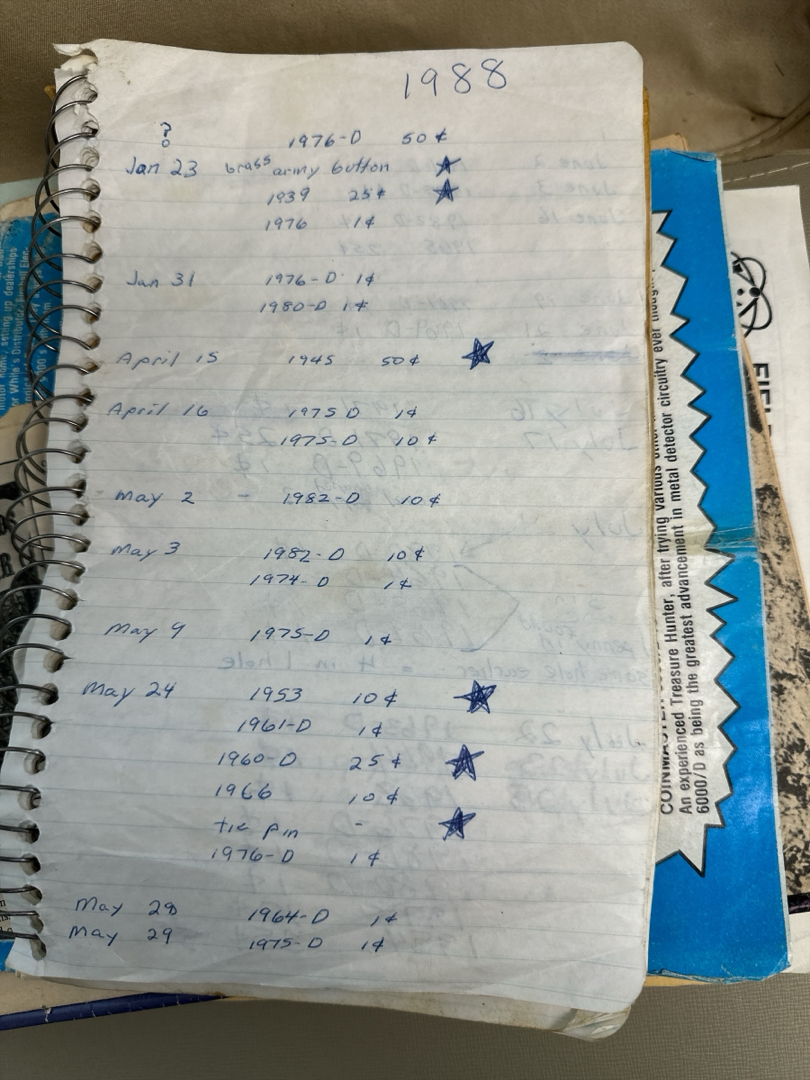 1988
? 1976-D 50¢
Jan 23 brass army button ★
1939 25¢ ★
1976 1¢
Jan 31 1976-D 1¢
1980-D 1¢
April 15 1945 50¢ ★
April 16 1975 D 1¢
1975-D 10¢
May 2 - 1982-D 10¢
May 3 1982-D 10¢
1974-D 1¢
May 9 1975-D 1¢
May 24 1953 10¢ ★
1961-D 1¢
1960-D 25¢ ★
1966 10¢
tie pin - ★
1976-D 1¢
May 28 1964-D 1¢
May 29 1975-D 1¢
An experienced Treasure Hunter, after trying various
6000/D as being the greatest advancement in metal detector circuitry ever
COINMASTER
FIEL
setting up dealerships